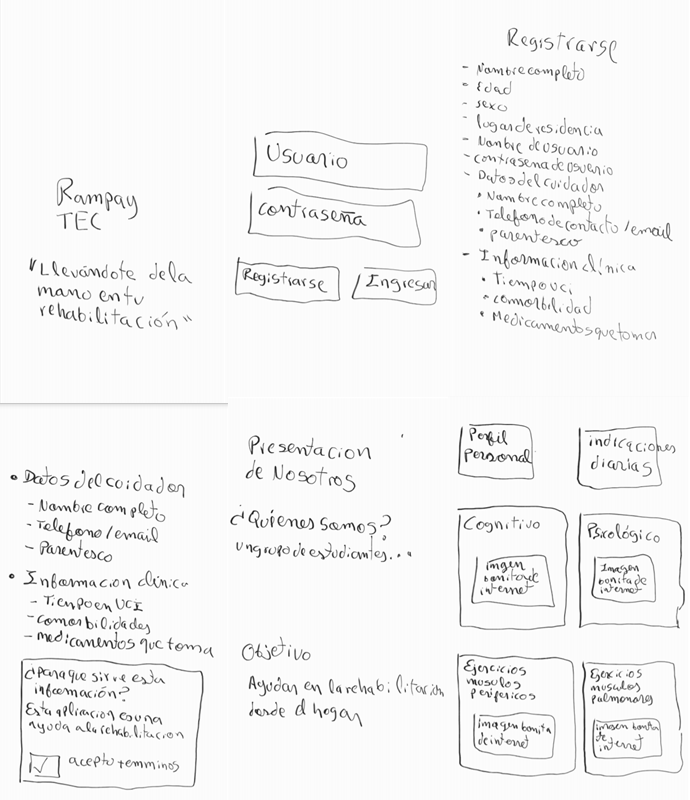 Rampay
TEC
"Llevándote dela
mano en tu
rehabilitación"
Usuario
contraseña
Registrarse
Ingresar
Registrarse
- Nombre completo
- Edad
- sexo
- lugar de residencia
- Nombre de usuario
- contrasena de usuario
- Datos del cuidador
• Nombre completo
• Telefono de contacto / email
• parentesco
- Informacion clínica
• Tiempo uci
• comorbilidad
• Medicamentos que toma
• Datos del cuidador
- Nombre completo
- Telefono / email
- Parentesco
• Informacion clínica
- Tienpo en UCI
- comorbilidades
- medicamentos que toma
¿Para que sirve esta
informacion?
Esta aplicacion es una
ayuda a la rehabilitacion
acepto temminos
Presentacion
de Nosotros
¿Quienes somos?
un grupo de estudiantes...
Objetivo
Ayudar en la rehabilitación
desde el hogar
Perfil
Personal
indicaciones
diarias
Cognitivo
imgen
bonita de
internet
Psicológico
Imagen
bonita de
internet
Ejercicios
musculos
perifericos
imagen bonita
de internet
Ejercicios
musculos
pulmonares
imagen bonita
de
internet